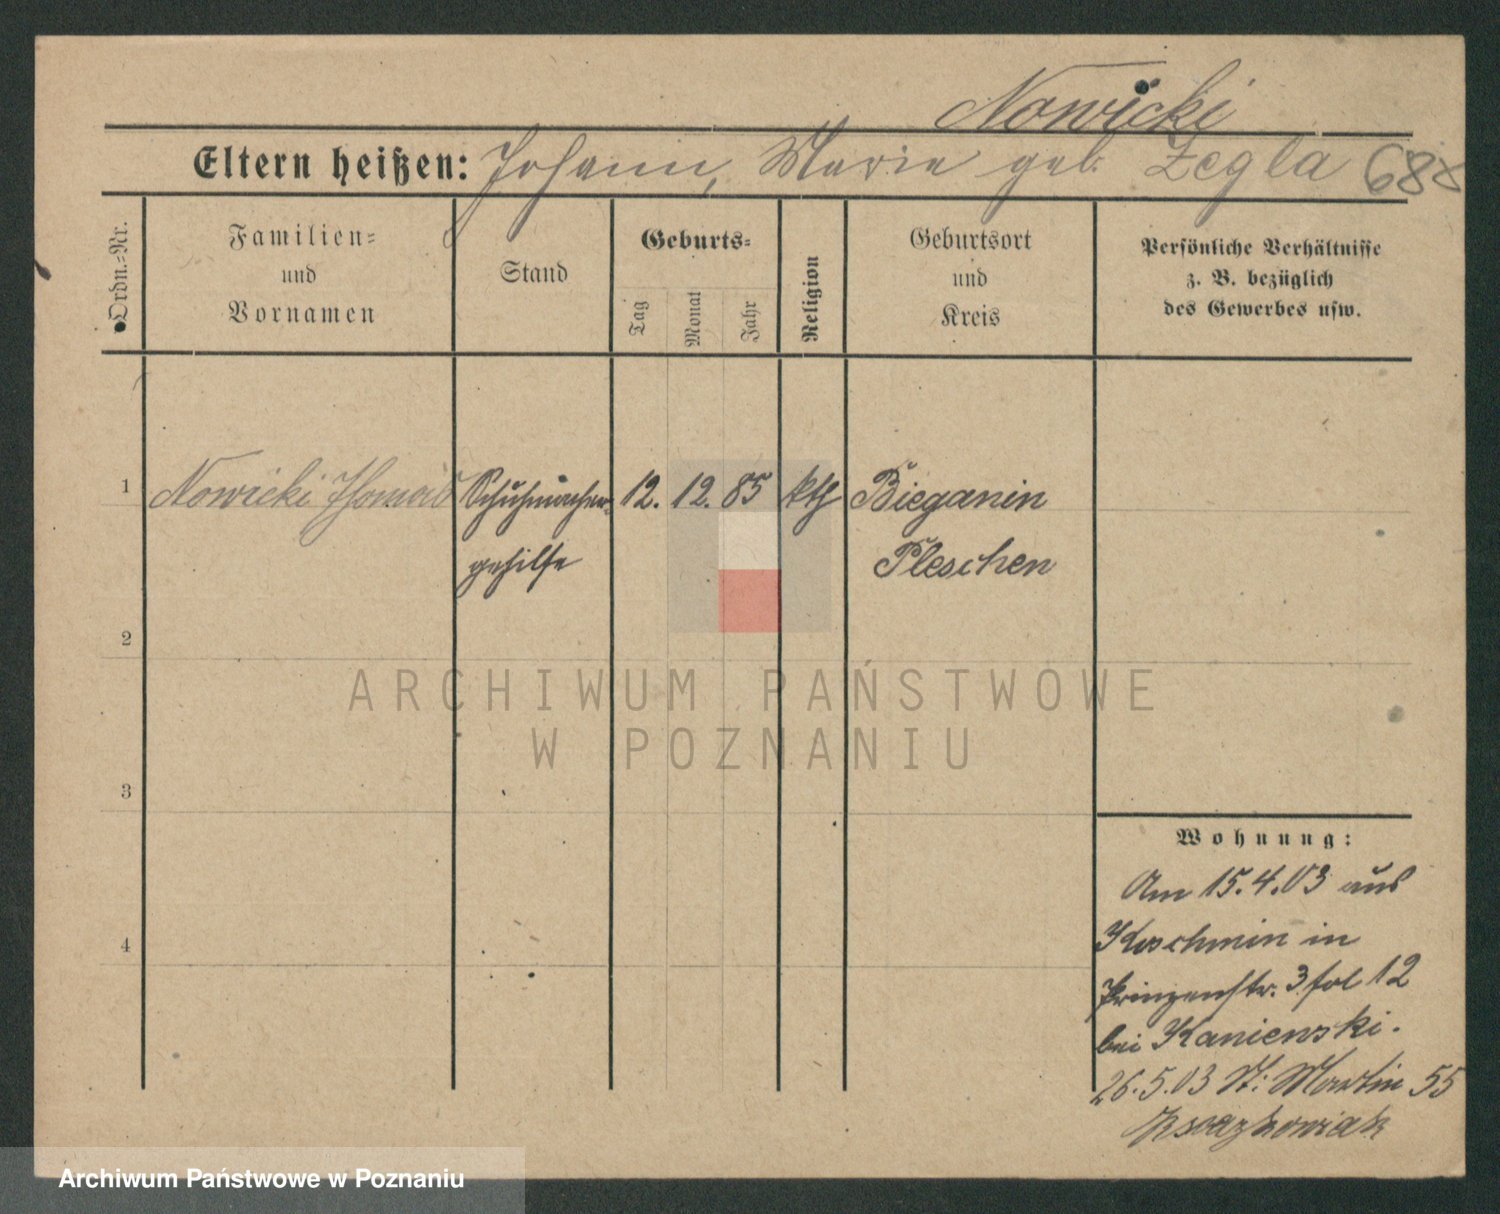 Nowicki
Eltern heißen: Johann, Marie geb. Zegla 688
Ordn.=Nr.
Familien=
und
Vornamen
Stand
Geburts=
Tag
Monat
Jahr
Religion
Geburtsort
und
Kreis
Persönliche Verhältnisse
z. B. bezüglich
des Gewerbes usw.
1 Nowicki Thomas Schuhmacher= 12. 12. 85 kth Bieganin
gehilfe Pleschen
2
3
4
Wohnung:
Am 15.4.03 aus
Koschmin in
Prinzenstr. 3 fol 12
bei Kaniewski.
26.5.03 St: Martin 55
ARCHIWUM PAŃSTWOWE
W POZNANIU
Archiwum Państwowe w Poznaniu